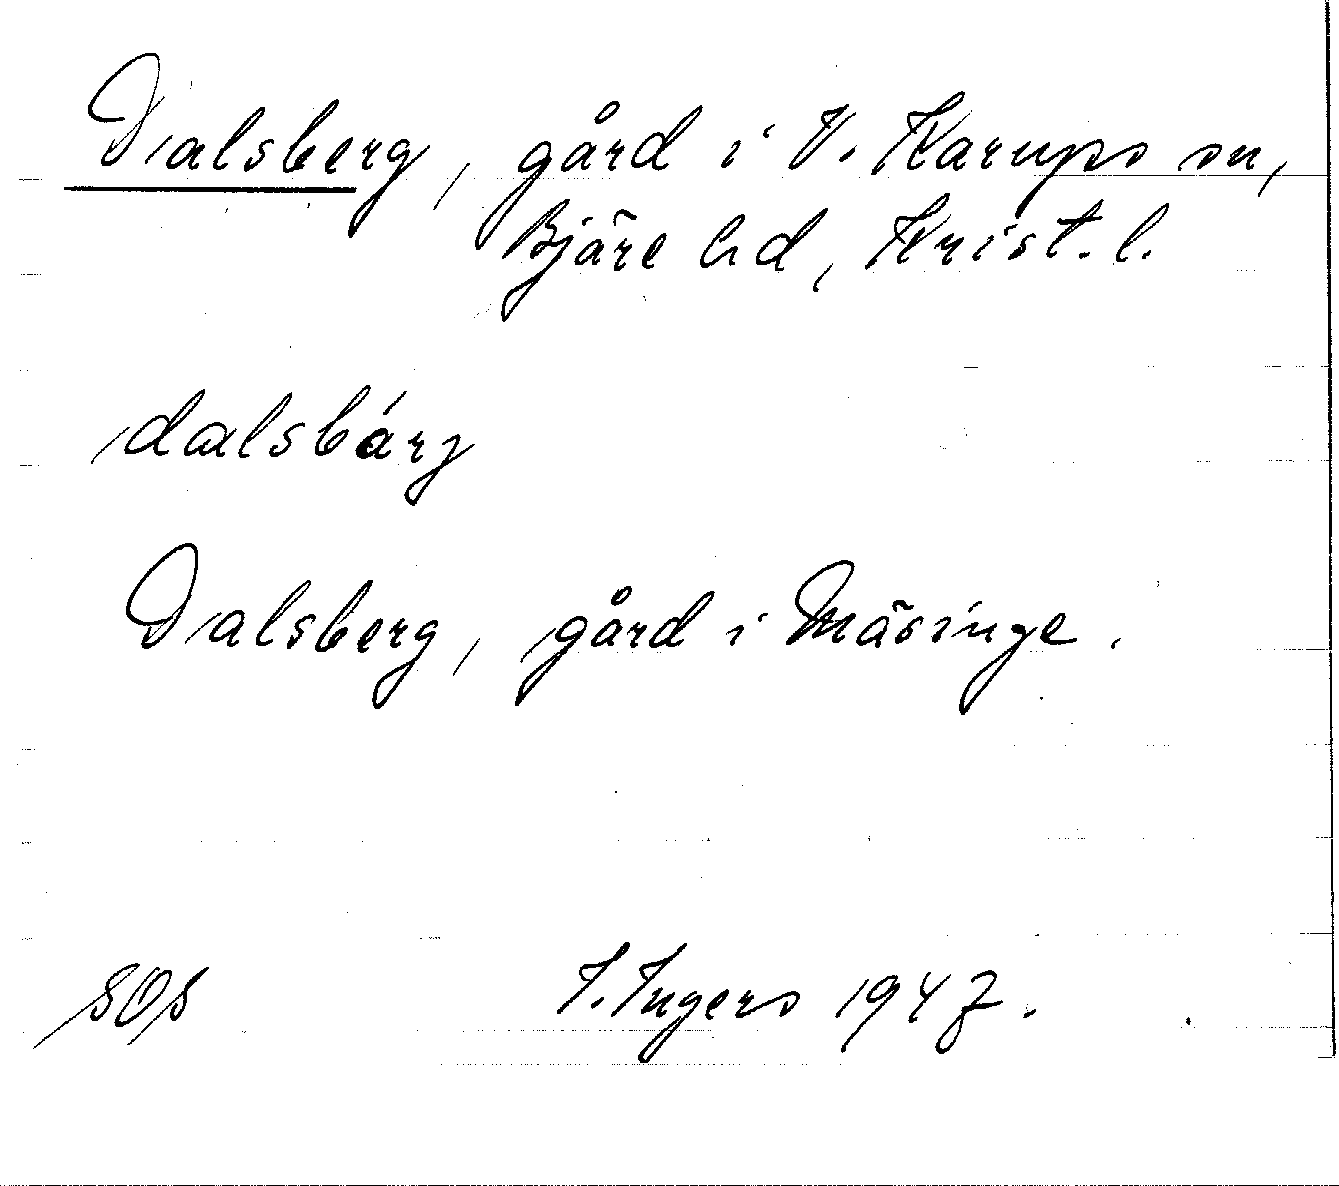 Dalsberg, gård i V. Karups sn,
Bjäre hd, Krist. l.
dalsbárj
Dalsberg, gård i Mäsinge.
SOS I. Ingers 1947.